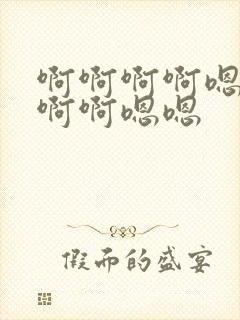 啊啊啊啊嗯
啊啊嗯嗯
假而的盛宴